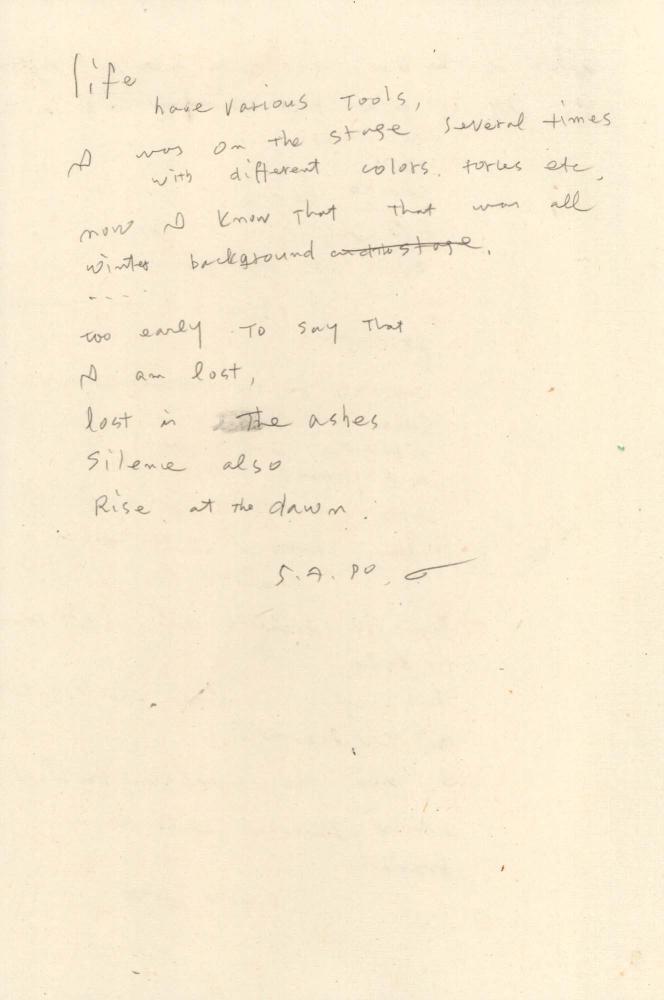 life
have various Tools,
I was on the stage several times
with different colors. torles etc,
now I know that that was all
winter background and its stage.
....
too early To say That
I am lost,
lost in The ashes
Silence also
Rise at the dawn.
S.A. PO.